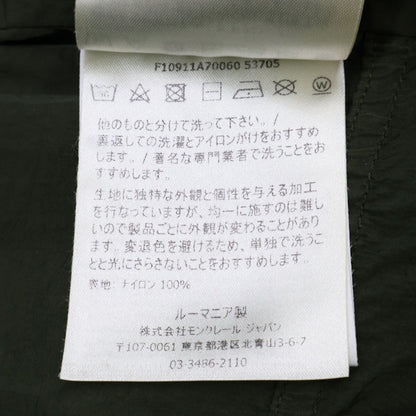 F10911A70060 53705
他のものと分けて洗って下さい。/
裏返しての洗濯とアイロンがけをおすすめ
します。/著名な専門業者で洗うことをお
すすめします。
生地に独特な外観と個性を与える加工
を行なっていますが、均一に施すのは難し
いので製品ごとに外観が変わることがあり
ます。変退色を避けるため、単独で洗うこ
とと光にさらさないことをおすすめします。
表地: ナイロン 100%
ルーマニア製
株式会社モンクレール ジャパン
〒107-0061 東京都港区北青山3-6-7
03-3486-2110